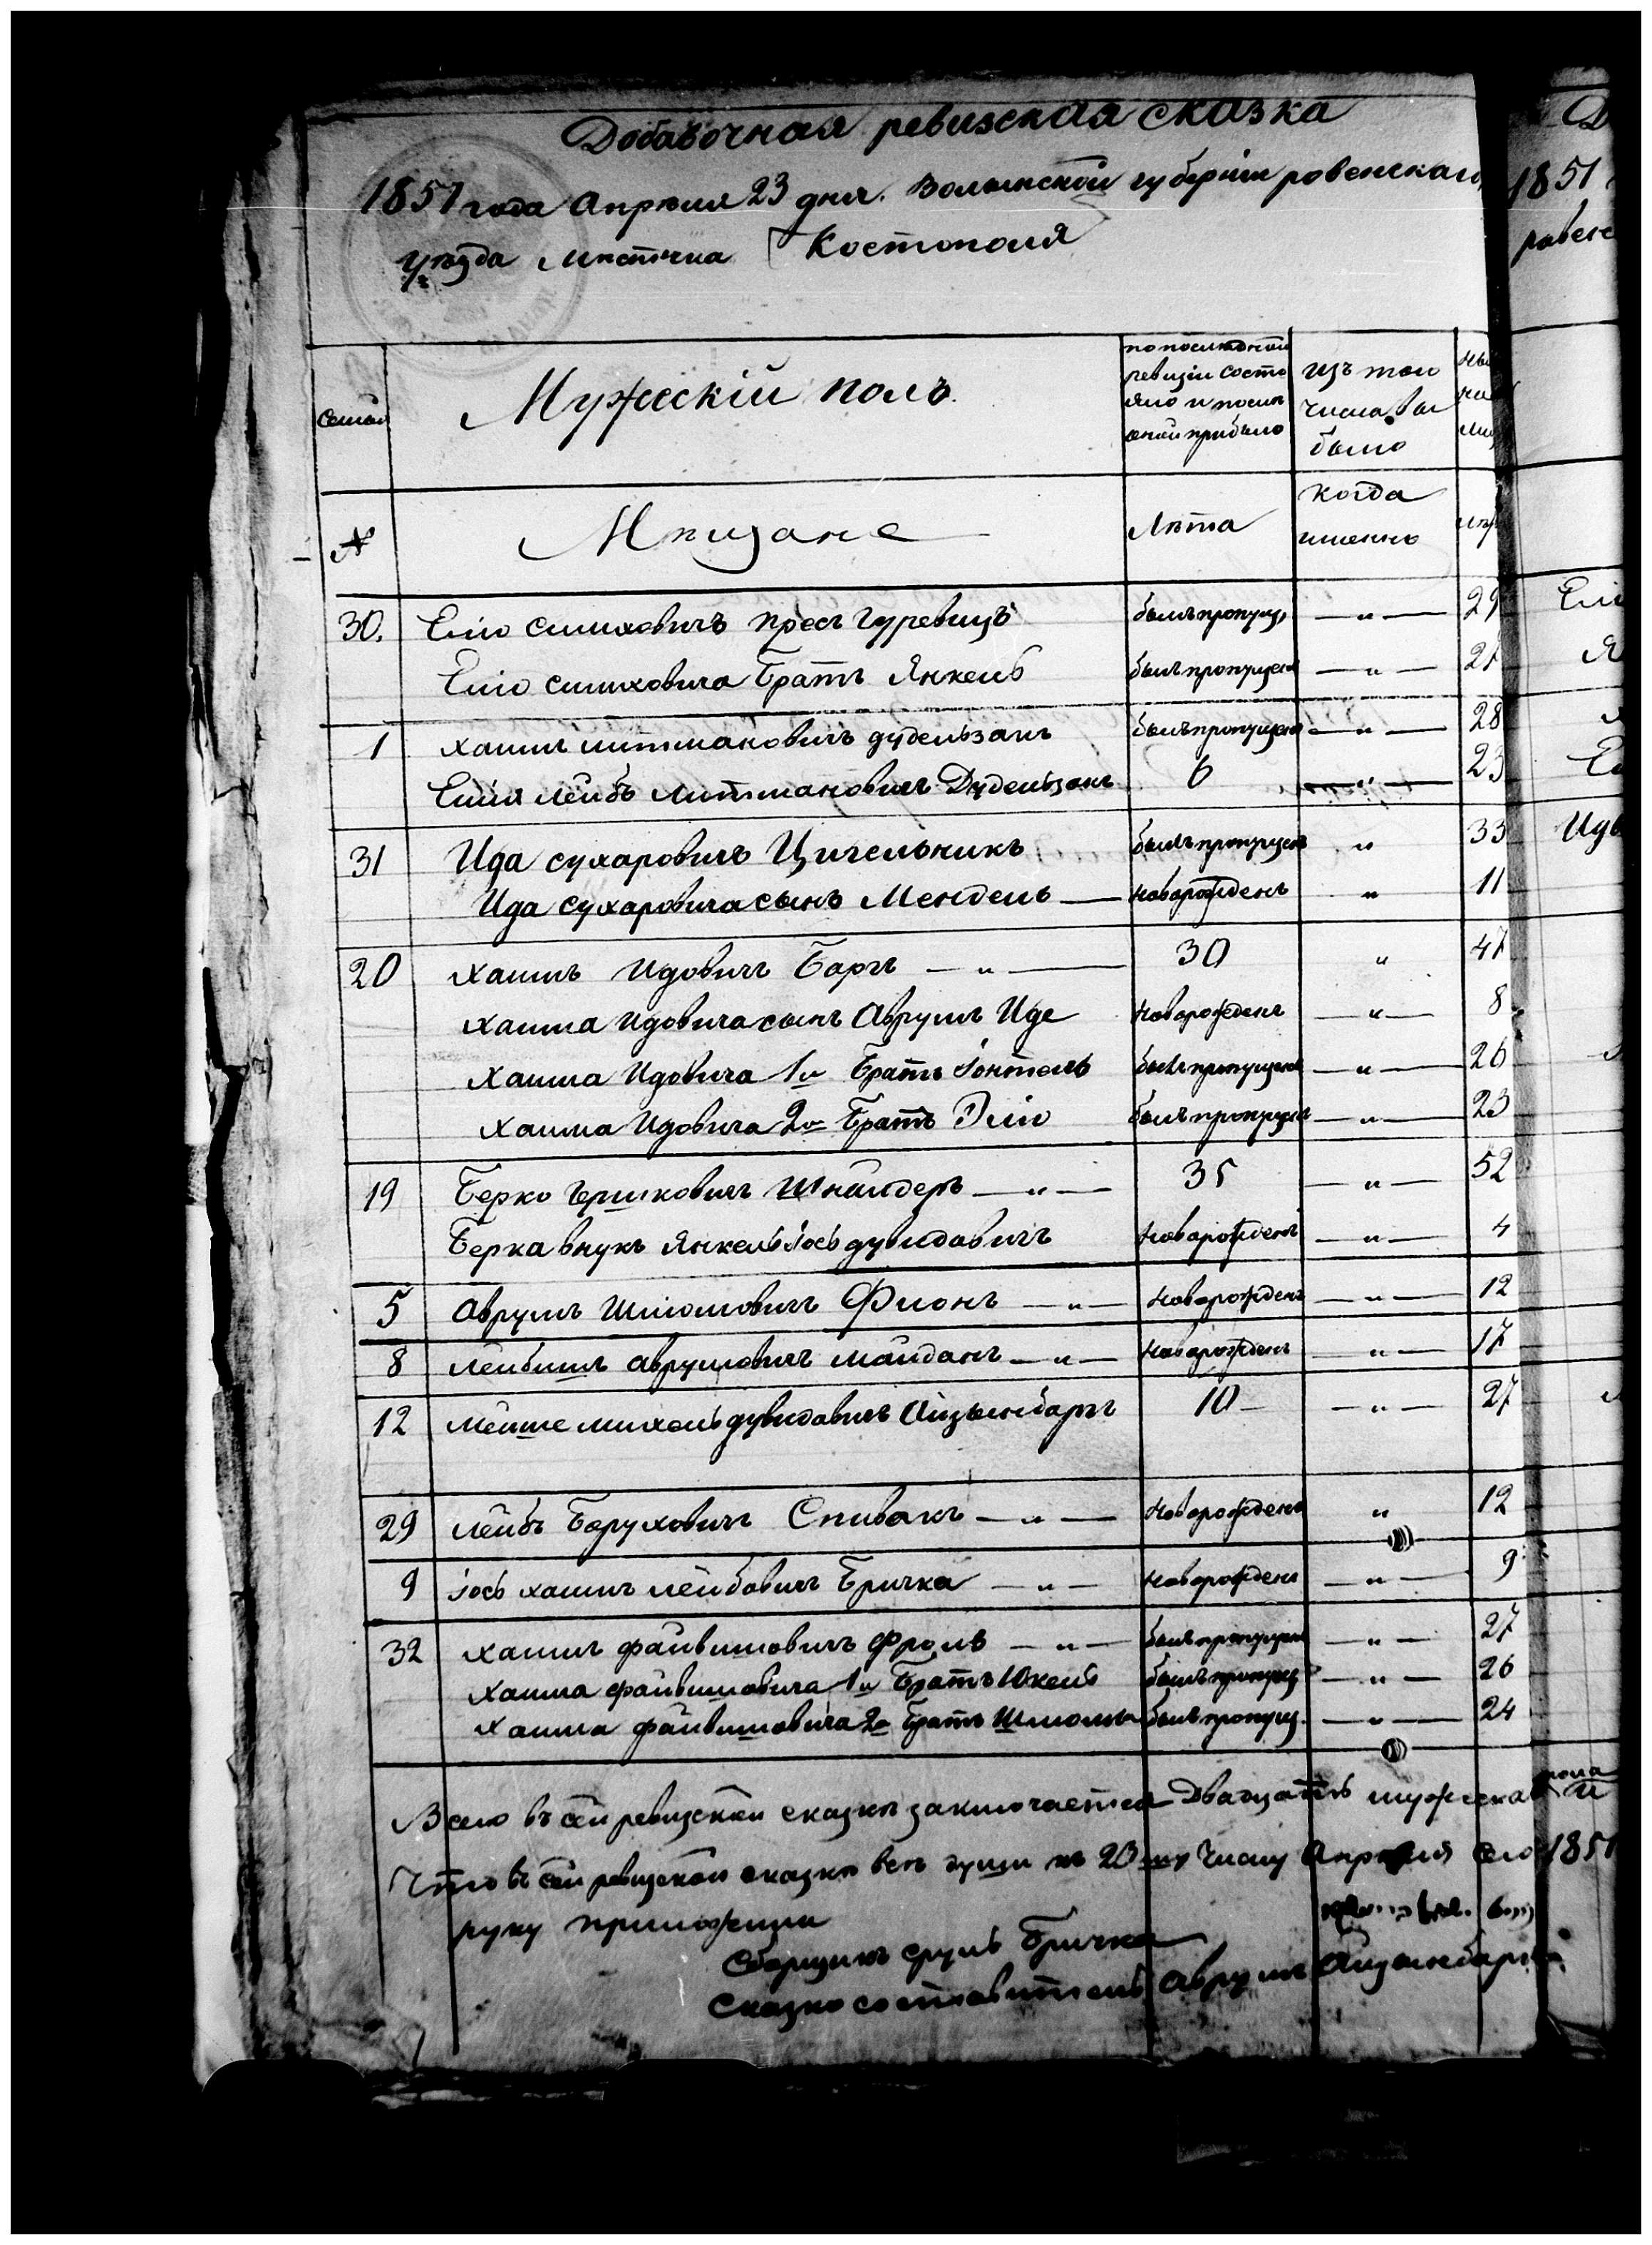 Добавочная ревизская сказка
1851 года Апреля 23 дня. Волынской губернии ровенскаго
уѣзда мѣстечка Костополя
семьи
Мужескій полъ.
по последней
ревизіи состо
яло и после
оной прибыло
изъ того
числа вы
было
№
Мѣщане
Лѣта
когда
именно
30. Еліо Симховичъ Пресъ Гуревицъ былъ пропущ. — „ — 29
Еліо Симховича братъ Янкель былъ пропущен — „ — 27
1 Хаимъ Литмановичъ Дудельзакъ былъ пропущен — „ — 28
Елія Лейбъ Литмановичъ Дудельзакъ 6 — „ — 23
31 Ида Сухаровичъ Цигельникъ былъ пропущен „ 33
Ида Сухаровича сынъ Мендель — новорожденъ „ 11
20 Хаимъ Идовичъ Баргъ — „ — 30 „ 47
Хаима Идовича сынъ Аврумъ Иде новорожденъ — „ — 8
Хаима Идовича 1й братъ Іонтель былъ пропущен — „ — 26
Хаима Идовича 2й братъ Эліо былъ пропущен — „ — 23
19 Берко Гершковичъ Шнайдеръ — „ — 35 — „ — 52
Берка внукъ Янкель Іось Дувидовичъ новорожденъ — „ — 4
5 Аврумъ Шліомовичъ Фионъ — „ — новорожденъ — „ — 12
8 Лейбишъ Аврумовичъ Майданъ — „ — новорожденъ — „ — 17
12 Мейше Михель Дувидовичъ Айзынбаргъ 10 — — „ — 27
29 Лейбъ Боруховичъ Спивакъ — „ — новорожденъ „ 12
9 Іось Хаимъ Лейбовичъ Бричка — „ — новорожден — „ — 9
32 Хаимъ Файвишовичъ Фроль — „ — былъ пропущен — „ — 27
Хаима Файвишовича 1й братъ Юкель былъ пропущ — „ — 26
Хаима Файвишовича 2й братъ Шліома былъ пропущ. — „ — 24
Всего въ сей ревизской сказкѣ заключается двадцать мужеска пола
Что въ сей ревизской сказкѣ всѣ души къ 20му числу Апреля сего 1851
руку приложили
Сборщикъ Сруль Бричка
Сказкосоставитель Аврумъ Айзынбаргъ
1851
ровенс